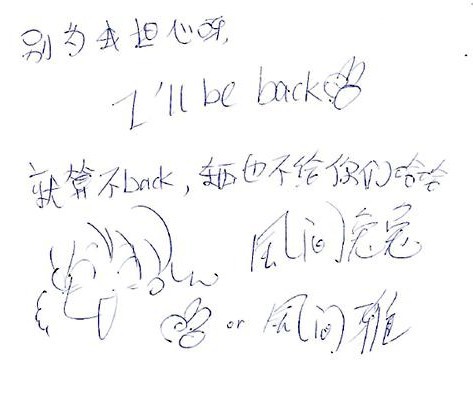 别为我担心呀,
I'll be back
就算不back, 也不给你们哈哈
风间
or 风间雅